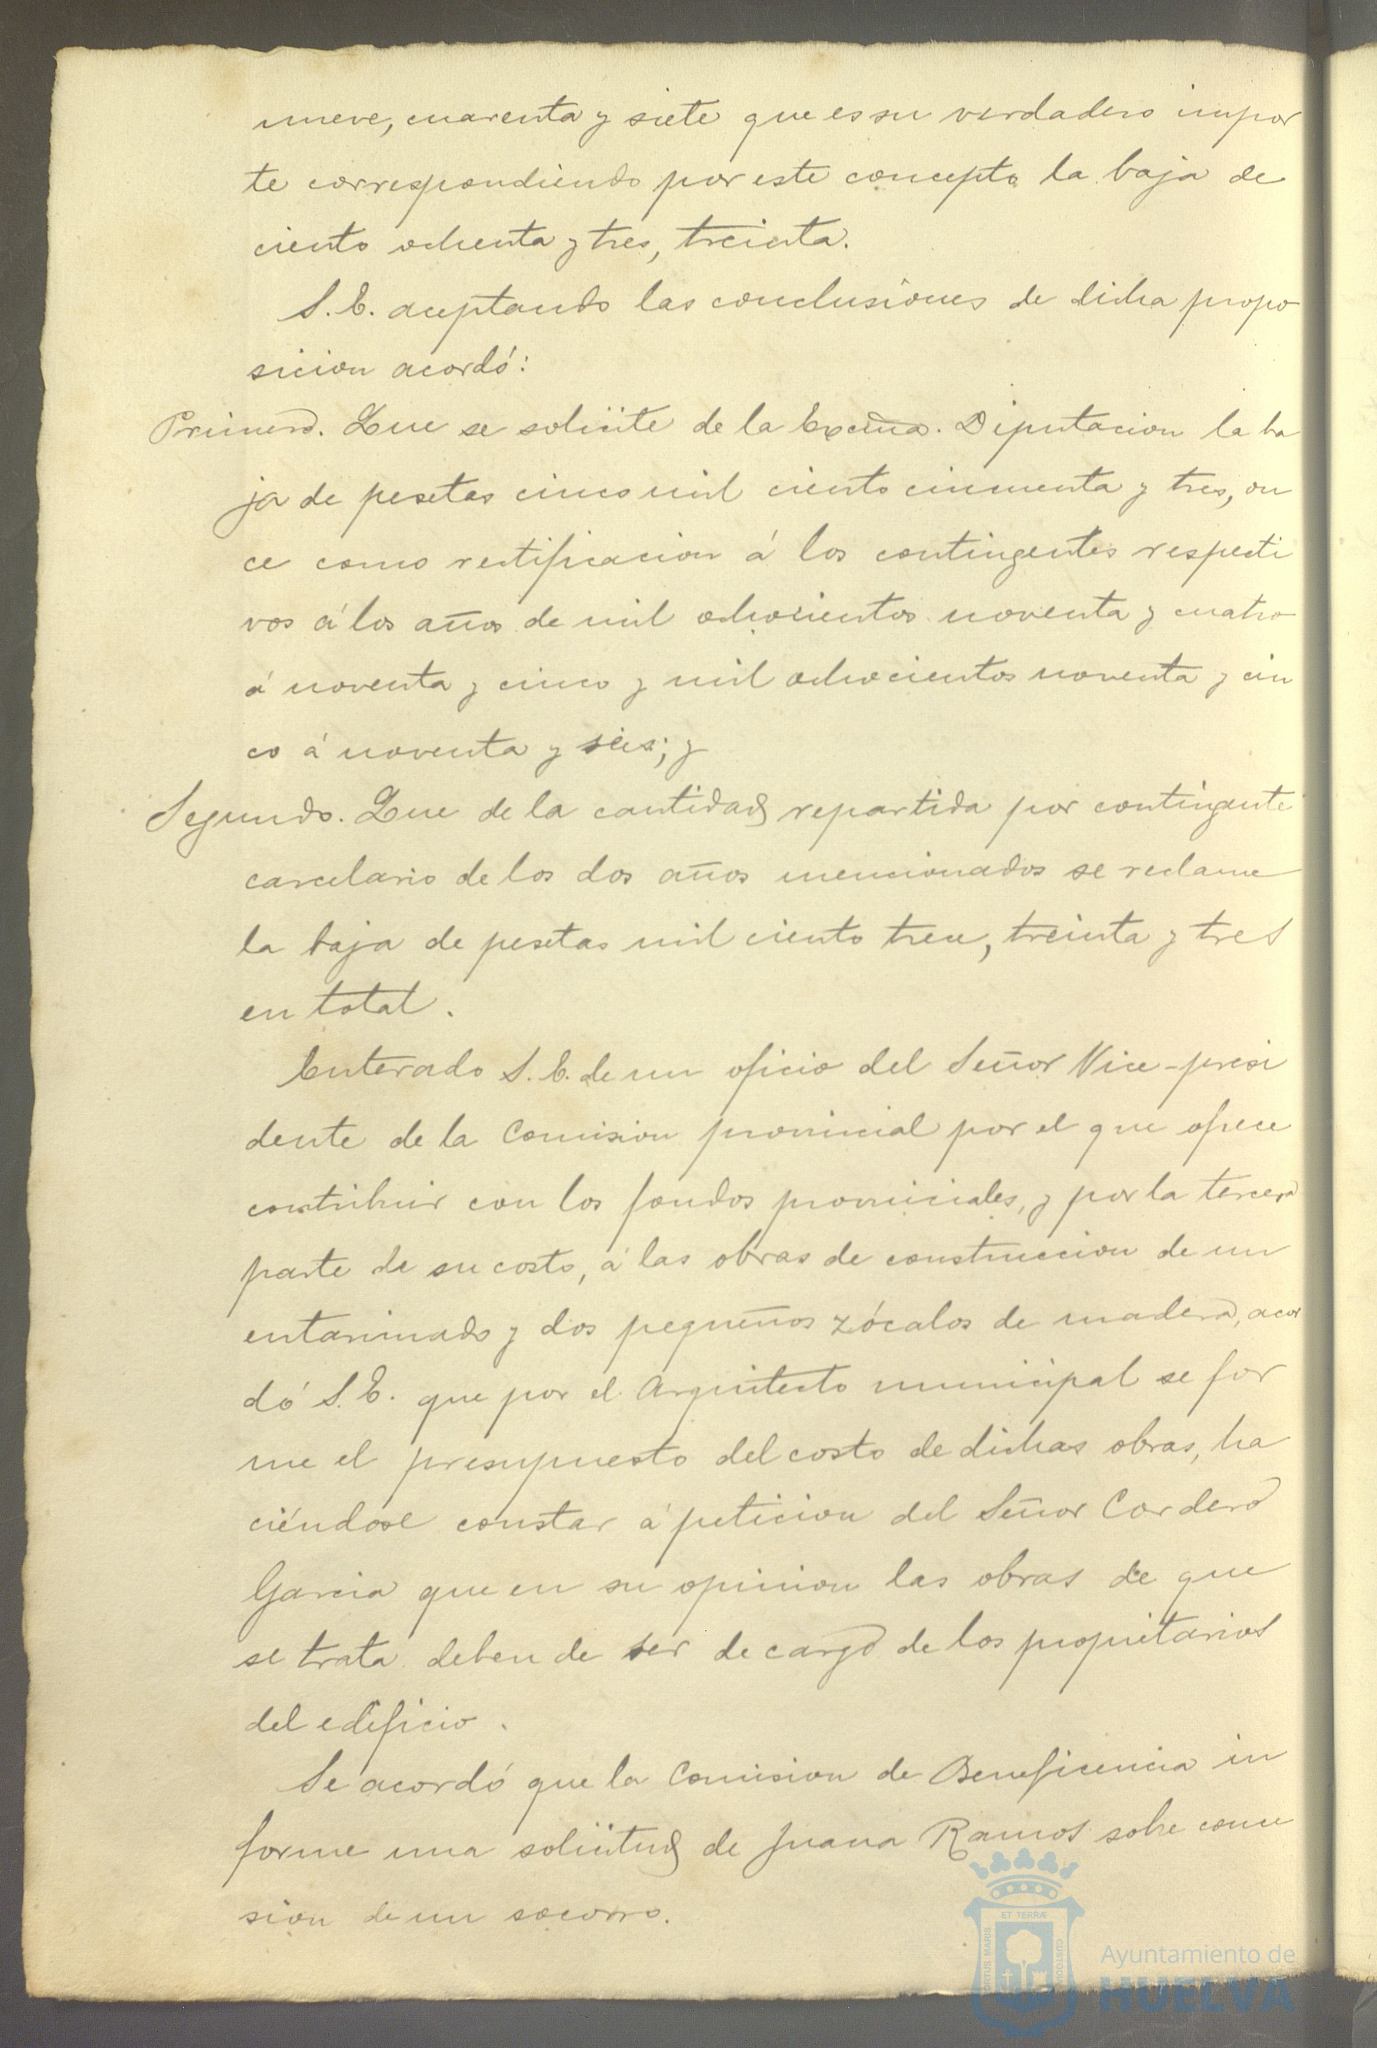 nueve, cuarenta y siete que es su verdadero impor
te correspondiendo por este concepto la baja de
ciento ochenta y tres, treinta.
S. E. aceptando las conclusiones de dicha propo
sicion acordó:
Primero. Que se solicite de la Excma. Diputacion la ba
ja de pesetas cinco mil ciento cincuenta y tres, on
ce como rectificacion á los contingentes respecti
vos á los años de mil ochocientos noventa y cuatro
á noventa y cinco y mil ochocientos noventa y cin
co á noventa y seis; y
Segundo. Que de la cantidad repartida por contingente
carcelario de los dos años mencionados se reclame
la baja de pesetas mil ciento trece, treinta y tres
en total.
Enterado S. E. de un oficio del Señor Vice-presi
dente de la Comision provincial por el que ofrece
contribuir con los fondos provinciales, y por la tercera
parte de su costo, á las obras de construccion de un
entarimado y dos pequeños zócalos de madera, acor
dó S. E. que por el Arquitecto municipal se for
me el presupuesto del costo de dichas obras, ha
ciéndose constar á peticion del Señor Cordero
Garcia que en su opinion las obras de que
se trata deben de ser de cargo de los propietarios
del edificio.
Se acordó que la Comision de Beneficencia in
forme una solicitud de Juana Ramos sobre conce
sion de un socorro.
PORTUS MARIS ET TERRÆ CUSTODIA
Ayuntamiento de
HUELVA